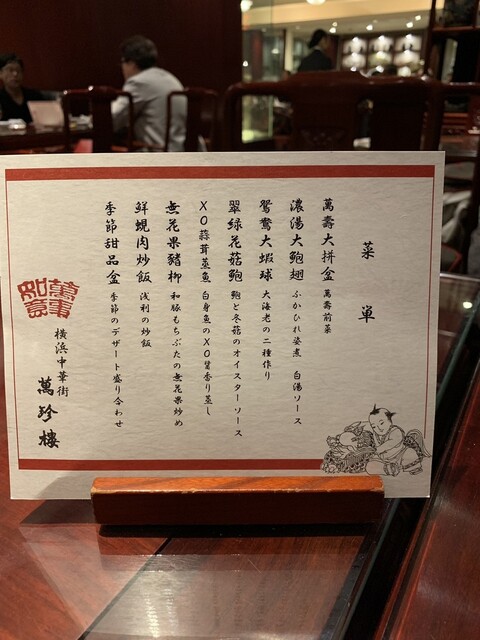 菜単
萬壽大拼盆 萬壽前菜
濃湯大鮑翅 ふかひれ姿煮 白湯ソース
鴛鴦大蝦球 大海老の二種作り
翠绿花菇鮑 鮑と冬菇のオイスターソース
XO蒜茸蒸魚 白身魚のXO醤香り蒸し
無花果豬柳 和豚もちぶたの無花果炒め
鮮蜆肉炒飯 浅利の炒飯
季節甜品盆 季節のデザート盛り合わせ
萬事如意
横浜中華街
萬珍樓